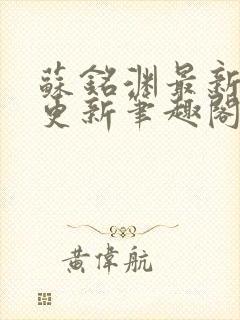 蘇銘淵最新
更新筆趣閣
黃偉航